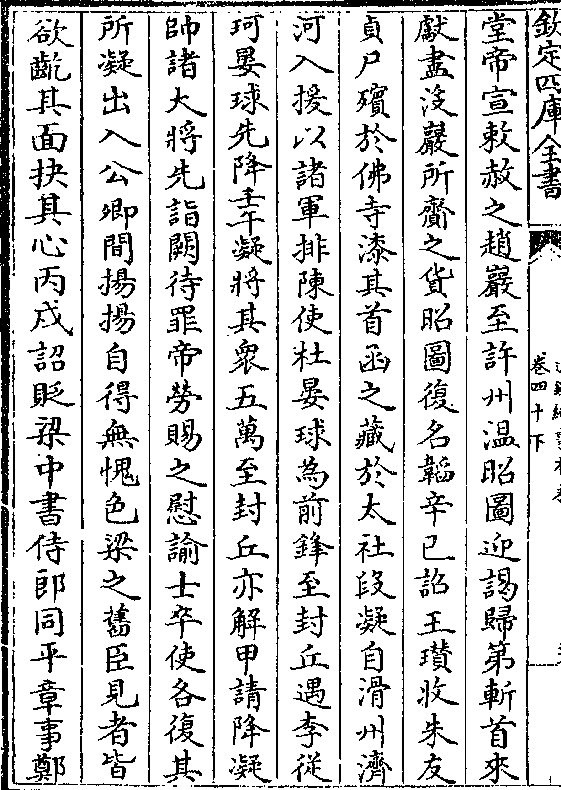 欽定四庫全書
卷四十下
堂帝宣敕赦之趙巖至許州温昭圖迎謁歸第斬首來
獻盡没巖所齎之貨昭圖復名韜辛巳詔王瓚收朱友
貞尸殯於佛寺漆其首函之藏於太社段凝自滑州濟
河入援以諸軍排陳使杜晏球為前鋒至封丘遇李從
珂晏球先降壬午凝將其衆五萬至封丘亦解甲請降凝
帥諸大將先詣闕待罪帝勞賜之慰諭士卒使各復其
所凝出入公卿間揚揚自得無愧色梁之舊臣見者皆
欲齕其面抉其心丙戌詔貶梁中書侍郎同平章事鄭